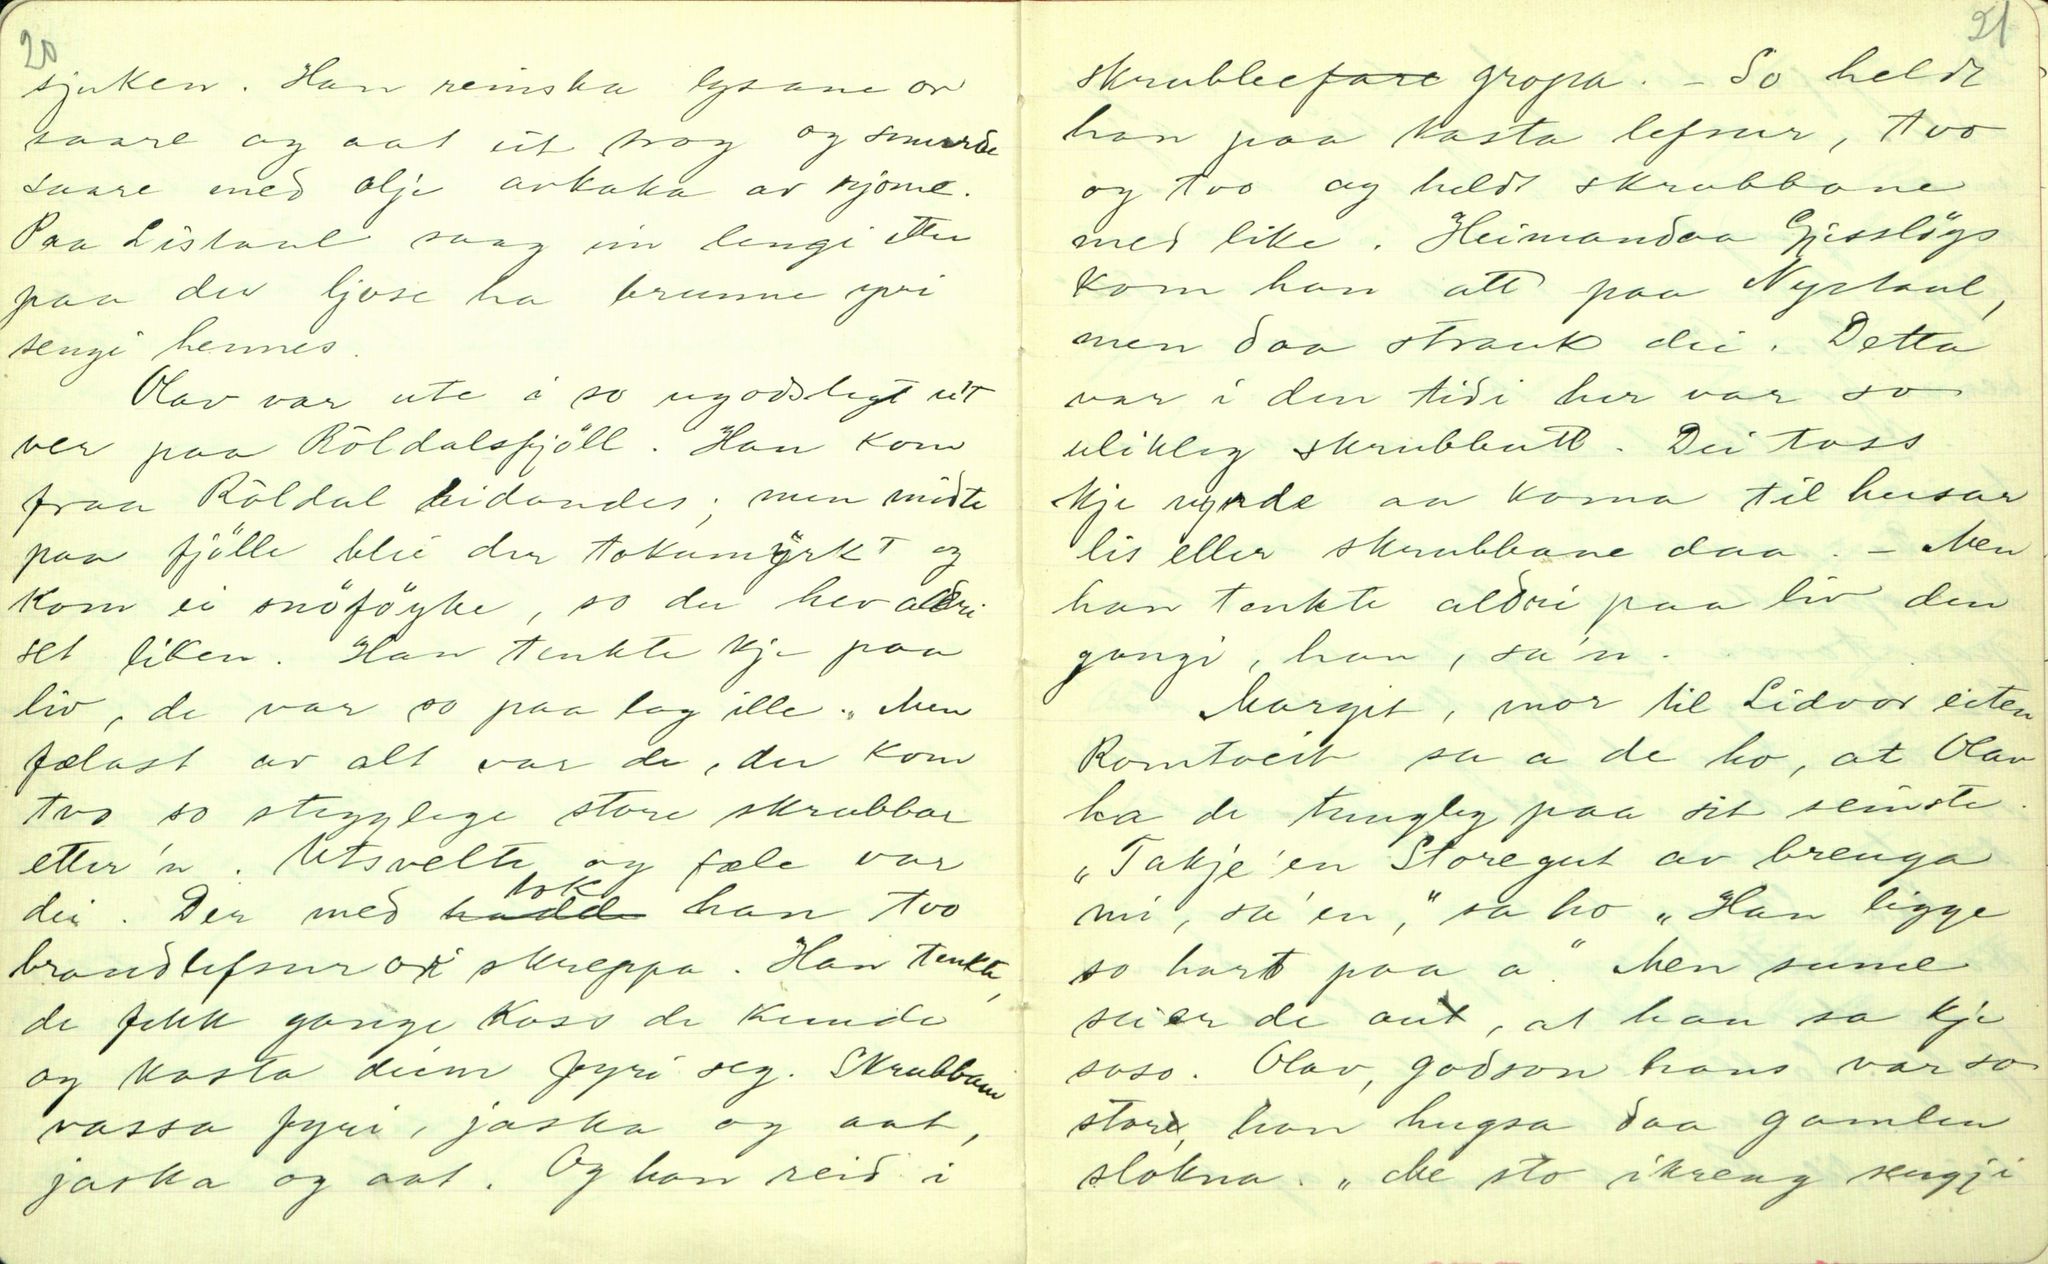 20
sjuken. Han reinska lysane or
saare og aat ut trog og smurde
saare med olje avkaka av rjome.
Paa Listaul saag ein lengi etter
paa der ljose ha brunne yvi
sengi hennes.
Olav var ute i so ugodslegt ut
ver paa Röldalsfjöll. Han kom
fraa Röldal ridandes; men midte
paa fjölle blei der tokamyrkt og
kom ei snöföyke, so du hev aldri
set liken. Han tenkte kje paa
liv, de var so paa lag ille. Men
fælast av alt var de, der kom
tvo so stygglege store skrubbar
etter'n. Utsvelte og fæle var
dei. Der med tok han tvo
brandlefsur or skreppa. Han tenkte,
de fekk gange koss de kunde
og kasta deim fyri seg. Skrubbain
vassa fyri, jaska og aat,
jaska og aat. Og han reid i
21
skrubbefare gropa. – So heldt
han paa kasta lefsur, tvo
og tvo og heldt skrubbane
med like. Heimandaa Gjesslögs
kom han att paa Nystaul,
men daa strauk dei. Detta
var i den tidi her var so
ulikleg skrubbatt. Dei toss
kje nyrde aa koma til husar
lis eller skrubbane daa. – Men
han tenkte aldri paa liv den
gongi, han, sa'n.
Margit, mor til Lidvor eiten
Romtveit sa a de ho, at Olav
ha de tungleg paa sit seinste.
„Takje'en Storegut av brenga
mi, sa'en," sa ho „Han ligge
so hart paa a." Men sume
seier de aut, at han sa kje
soso. Olav, godson hans var so
store, han hugsa daa gamlen
slokna. „Me sto ikreng sengji